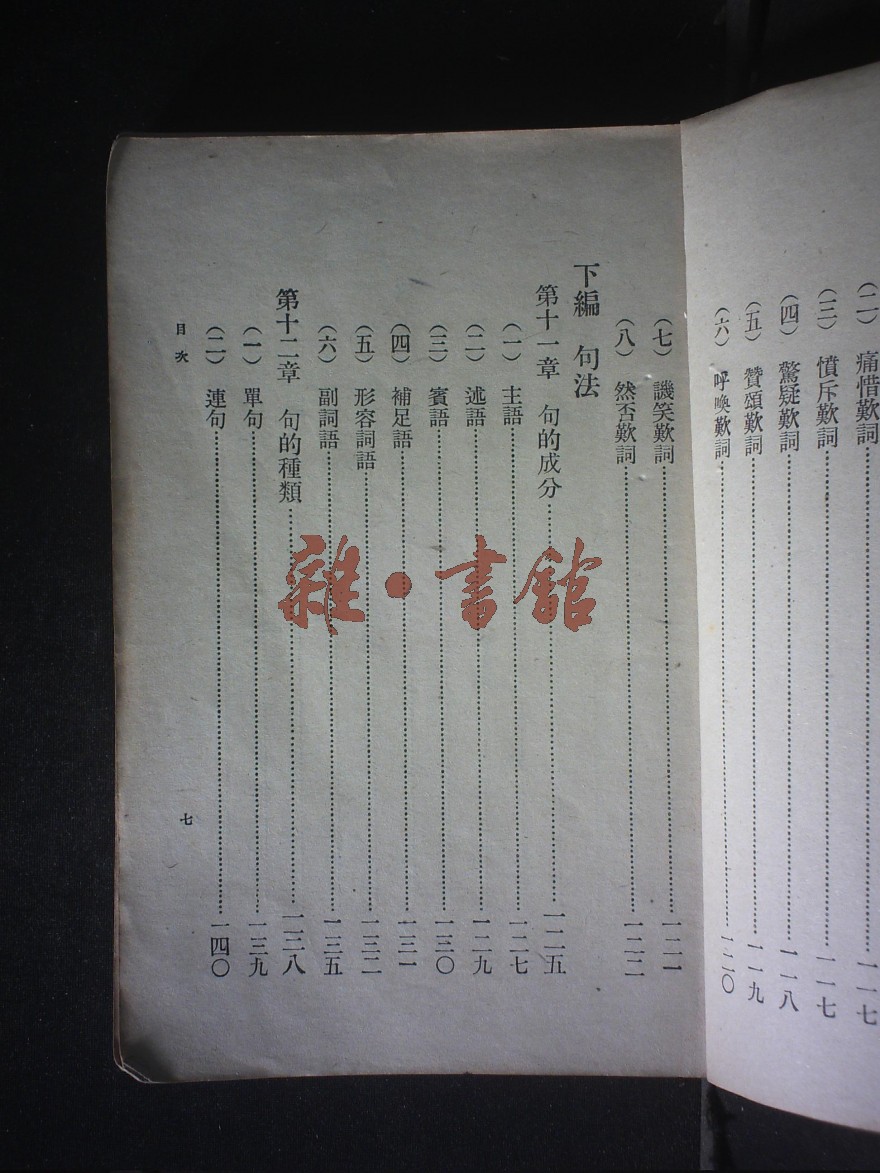 (二) 痛惜歎詞……一一七
(三) 憤斥歎詞……一一七
(四) 驚疑歎詞……一一八
(五) 贊頌歎詞……一一九
(六) 呼喚歎詞……一二〇
(七) 譏笑歎詞……一二一
(八) 然否歎詞……一二二
下編 句法
第十一章 句的成分……一二五
(一) 主語……一二七
(二) 述語……一二九
(三) 賓語……一三〇
(四) 補足語……一三一
(五) 形容詞語……一三二
(六) 副詞語……一三五
第十二章 句的種類……一三八
(一) 單句……一三九
(二) 連句……一四〇
目次
七
雜·書館